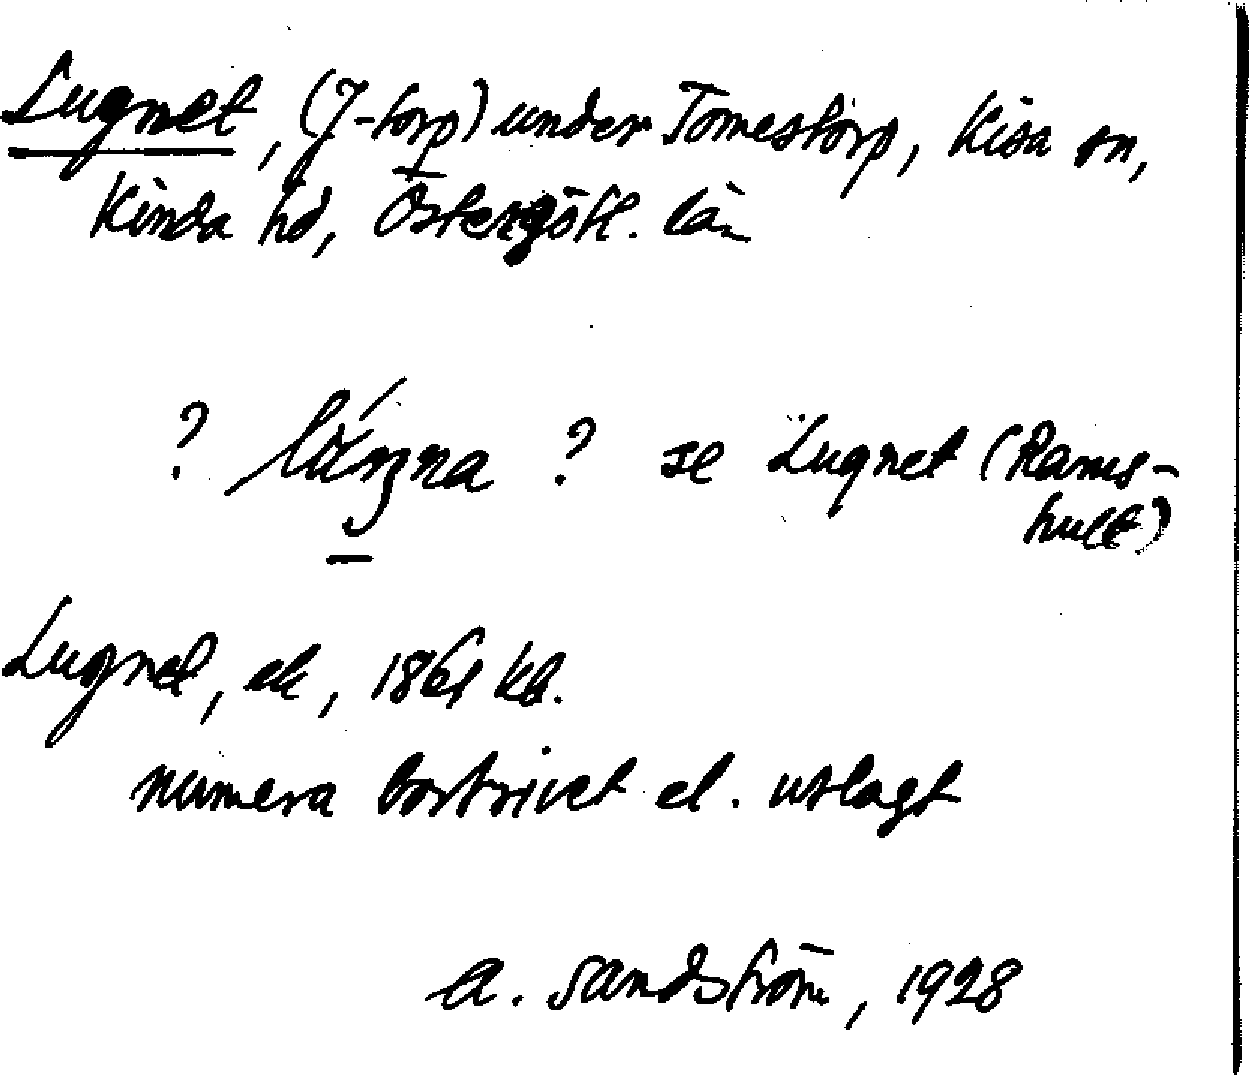 Lugnet, (J-torp) under Tomestorp, Kisa sn,
Kinda hd, Östergötl. län
? ? se Lugnet (Rams-
hult)
Lugnet, ek, 1861 kb.
numera bortrivet el. utlagt
A. Sandström, 1928